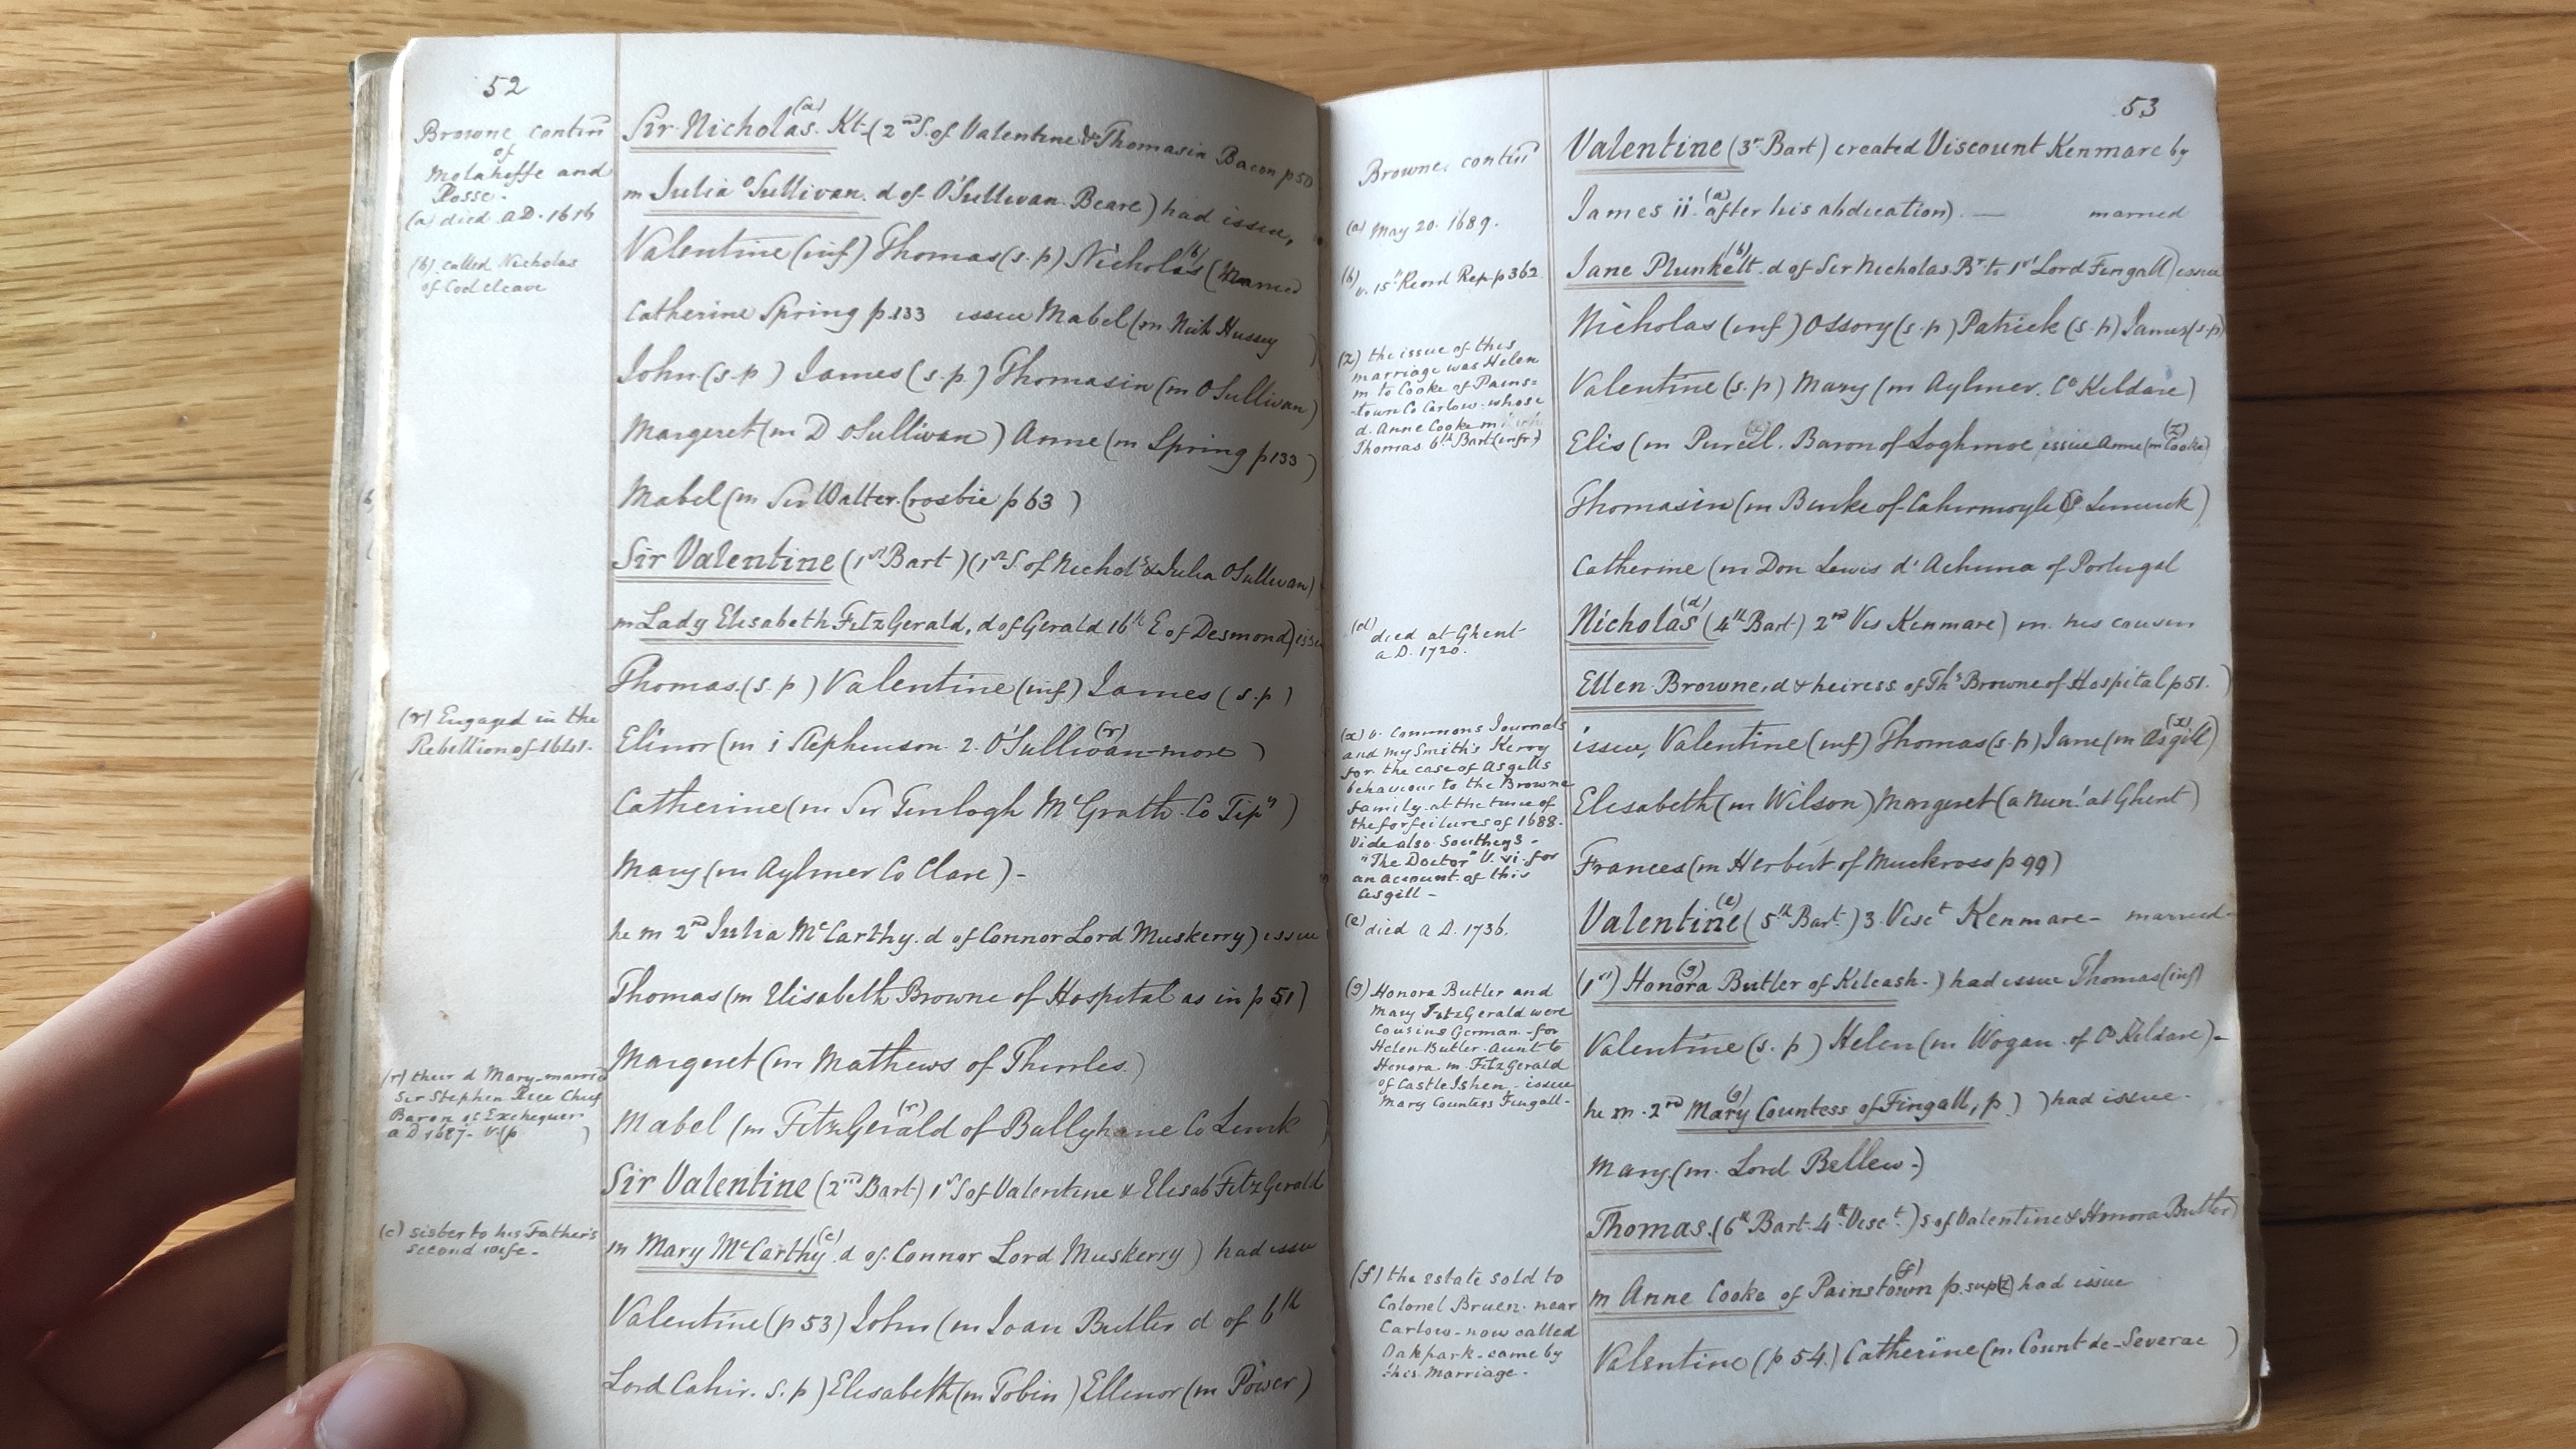 52
Browne contin
of
Molahiffe and
Rosse.
(a) died A.D. 1616
(b) called Nicholas
of Codcleave
(r) Engaged in the
Rebellion of 1641.
(r) their d Mary married
Sir Stephen Rice Chief
Baron of Exchequer
a D 1687. v (p )
(c) sister to his Father's
second wife.
Sir Nicholas (a) Kt. (2nd S. of Valentine & Thomasin Bacon p 50
m Julia O'Sullivan. d of O'Sullivan Beare) had issue,
Valentine (inf) Thomas (s.p) Nicholas (b) (Married
Catherine Spring p.133 issue Mabel (m Nich Hussey )
John (s.p) James (s.p.) Thomasin (m OSullivan)
Margeret (m D OSullivan) Anne (m Spring p 133)
Mabel (m Sir Walter Crosbie p 63 )
Sir Valentine (1st Bart) (1st S. of Nichols & Julia OSullivan)
m Lady Elisabeth FitzGerald, d of Gerald 16th E of Desmond) issue
Thomas. (s.p) Valentine (inf) James (s.p)
Elinor (m i Stephenson 2. O'Sullivan-more (r) )
Catherine (m Sir Turlogh McGrath. Co Tipy)
Mary (m Aylmer Co Clare) -
he m 2nd Julia McCarthy. d of Connor Lord Muskerry) issue
Thomas (m Elisabeth Browne of Hospital as in p 51)
Margeret (m Mathews of Thurles.)
Mabel (m FitzGerald (r) of Ballyhane Co Limk )
Sir Valentine (2nd Bart) 1st S of Valentine & Elisab FitzGerald
m Mary McCarthy (c) d of Connor Lord Muskerry) had issue
Valentine (p 53) John (m Joan Butler d of 6th
Lord Cahir. s.p) Elisabeth (m Tobin) Ellenor (m Power)
53
Browne contin
(a) May 20. 1689.
(b) v. 15th Record Rep p 362.
(z) the issue of this
marriage was Helen
m to Cooke of Pains=
-town Co Carlow. whose
d. Anne Cooke m
Thomas 6th Bart (infr)
(d) died at Ghent
a D. 1720.
(x) v. Commons Journals
and my Smith's Kerry
for the case of Asgills
behaviour to the Browne
family at the time of
the forfeitures of 1688.
Vide also Southeys -
"The Doctor" V. vi. for
an account of this
Asgill -
(e) died a D. 1736.
(g) Honora Butler and
Mary FitzGerald were
Cousins German - for
Helen Butler Aunt to
Honora m FitzGerald
of Castle Ishen - issue
Mary Countess Fingall -
(f) the estate sold to
Colonel Bruen near
Carlow - now called
Oakpark - came by
this Marriage.
Valentine (3rd Bart) created Viscount Kenmare by
James ii (a) after his abdication). — married
Jane Plunkett (b) d of Sir Nicholas Br to 1st Lord Fingall) issue
Nicholas (inf) Ossory (s.p) Patrick (s.p) James (s.p)
Valentine (s.p) Mary (m Aylmer. Co Kildare)
Elis (m Purcell. Baron of Loghmoe issue Anne (m Cooke (z))
Thomasin (m Burke of Cahirmoyle Co Limerick)
Catherine (m Don Lewis d'Achuna of Portugal
Nicholas (d) (4th Bart) 2nd Vis Kenmare) m his cousin
Ellen Browne, d & heiress of Ths Browne of Hospital p 51. )
issue, Valentine (inf) Thomas (s.p) Jane (m Asgill (x))
Elisabeth (m Wilson) Margeret (a Nun! at Ghent)
Frances (m Herbert of Muckross p 99)
Valentine (e) (5th Bart.) 3 Visct Kenmare - married-
(1st) Honora (g) Butler of Kilcash.) had issue Thomas (inf)
Valentine (s.p) Helen (m Wogan of Co Kildare) -
he m. 2nd Mary (g) Countess of Fingall, p ) ) had issue.
Mary (m. Lord Bellew.)
Thomas. (6th Bart. 4th Visct.) s of Valentine & Honora Butler)
m Anne Cooke of Painstown (f) p. sup (z) had issue
Valentine (p 54.) Catherine (m. Count de-Severac )